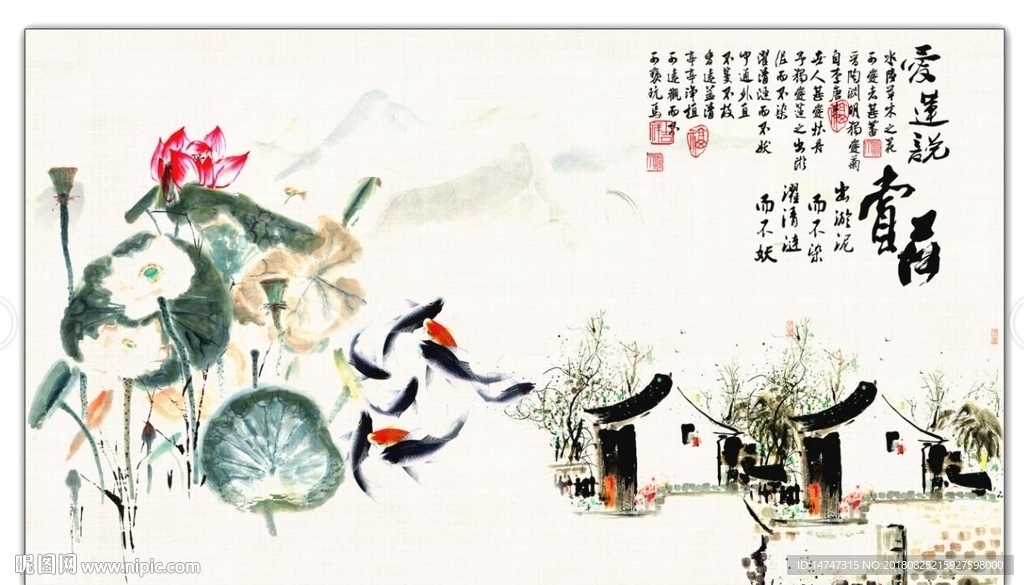 愛蓮説
水陸草木之花
可愛者甚蕃
晉陶渊明獨愛菊
自李唐来
世人甚愛牡丹
予獨愛蓮之出淤
泥而不染
濯清漣而不妖
中通外直
不蔓不枝
香遠益清
亭亭淨植
可遠觀而不
可亵玩焉
賞荷
出淤泥
而不染
濯清漣
而不妖
昵图网 www.nipic.com
ID:14747315 NO:20180825215927598000